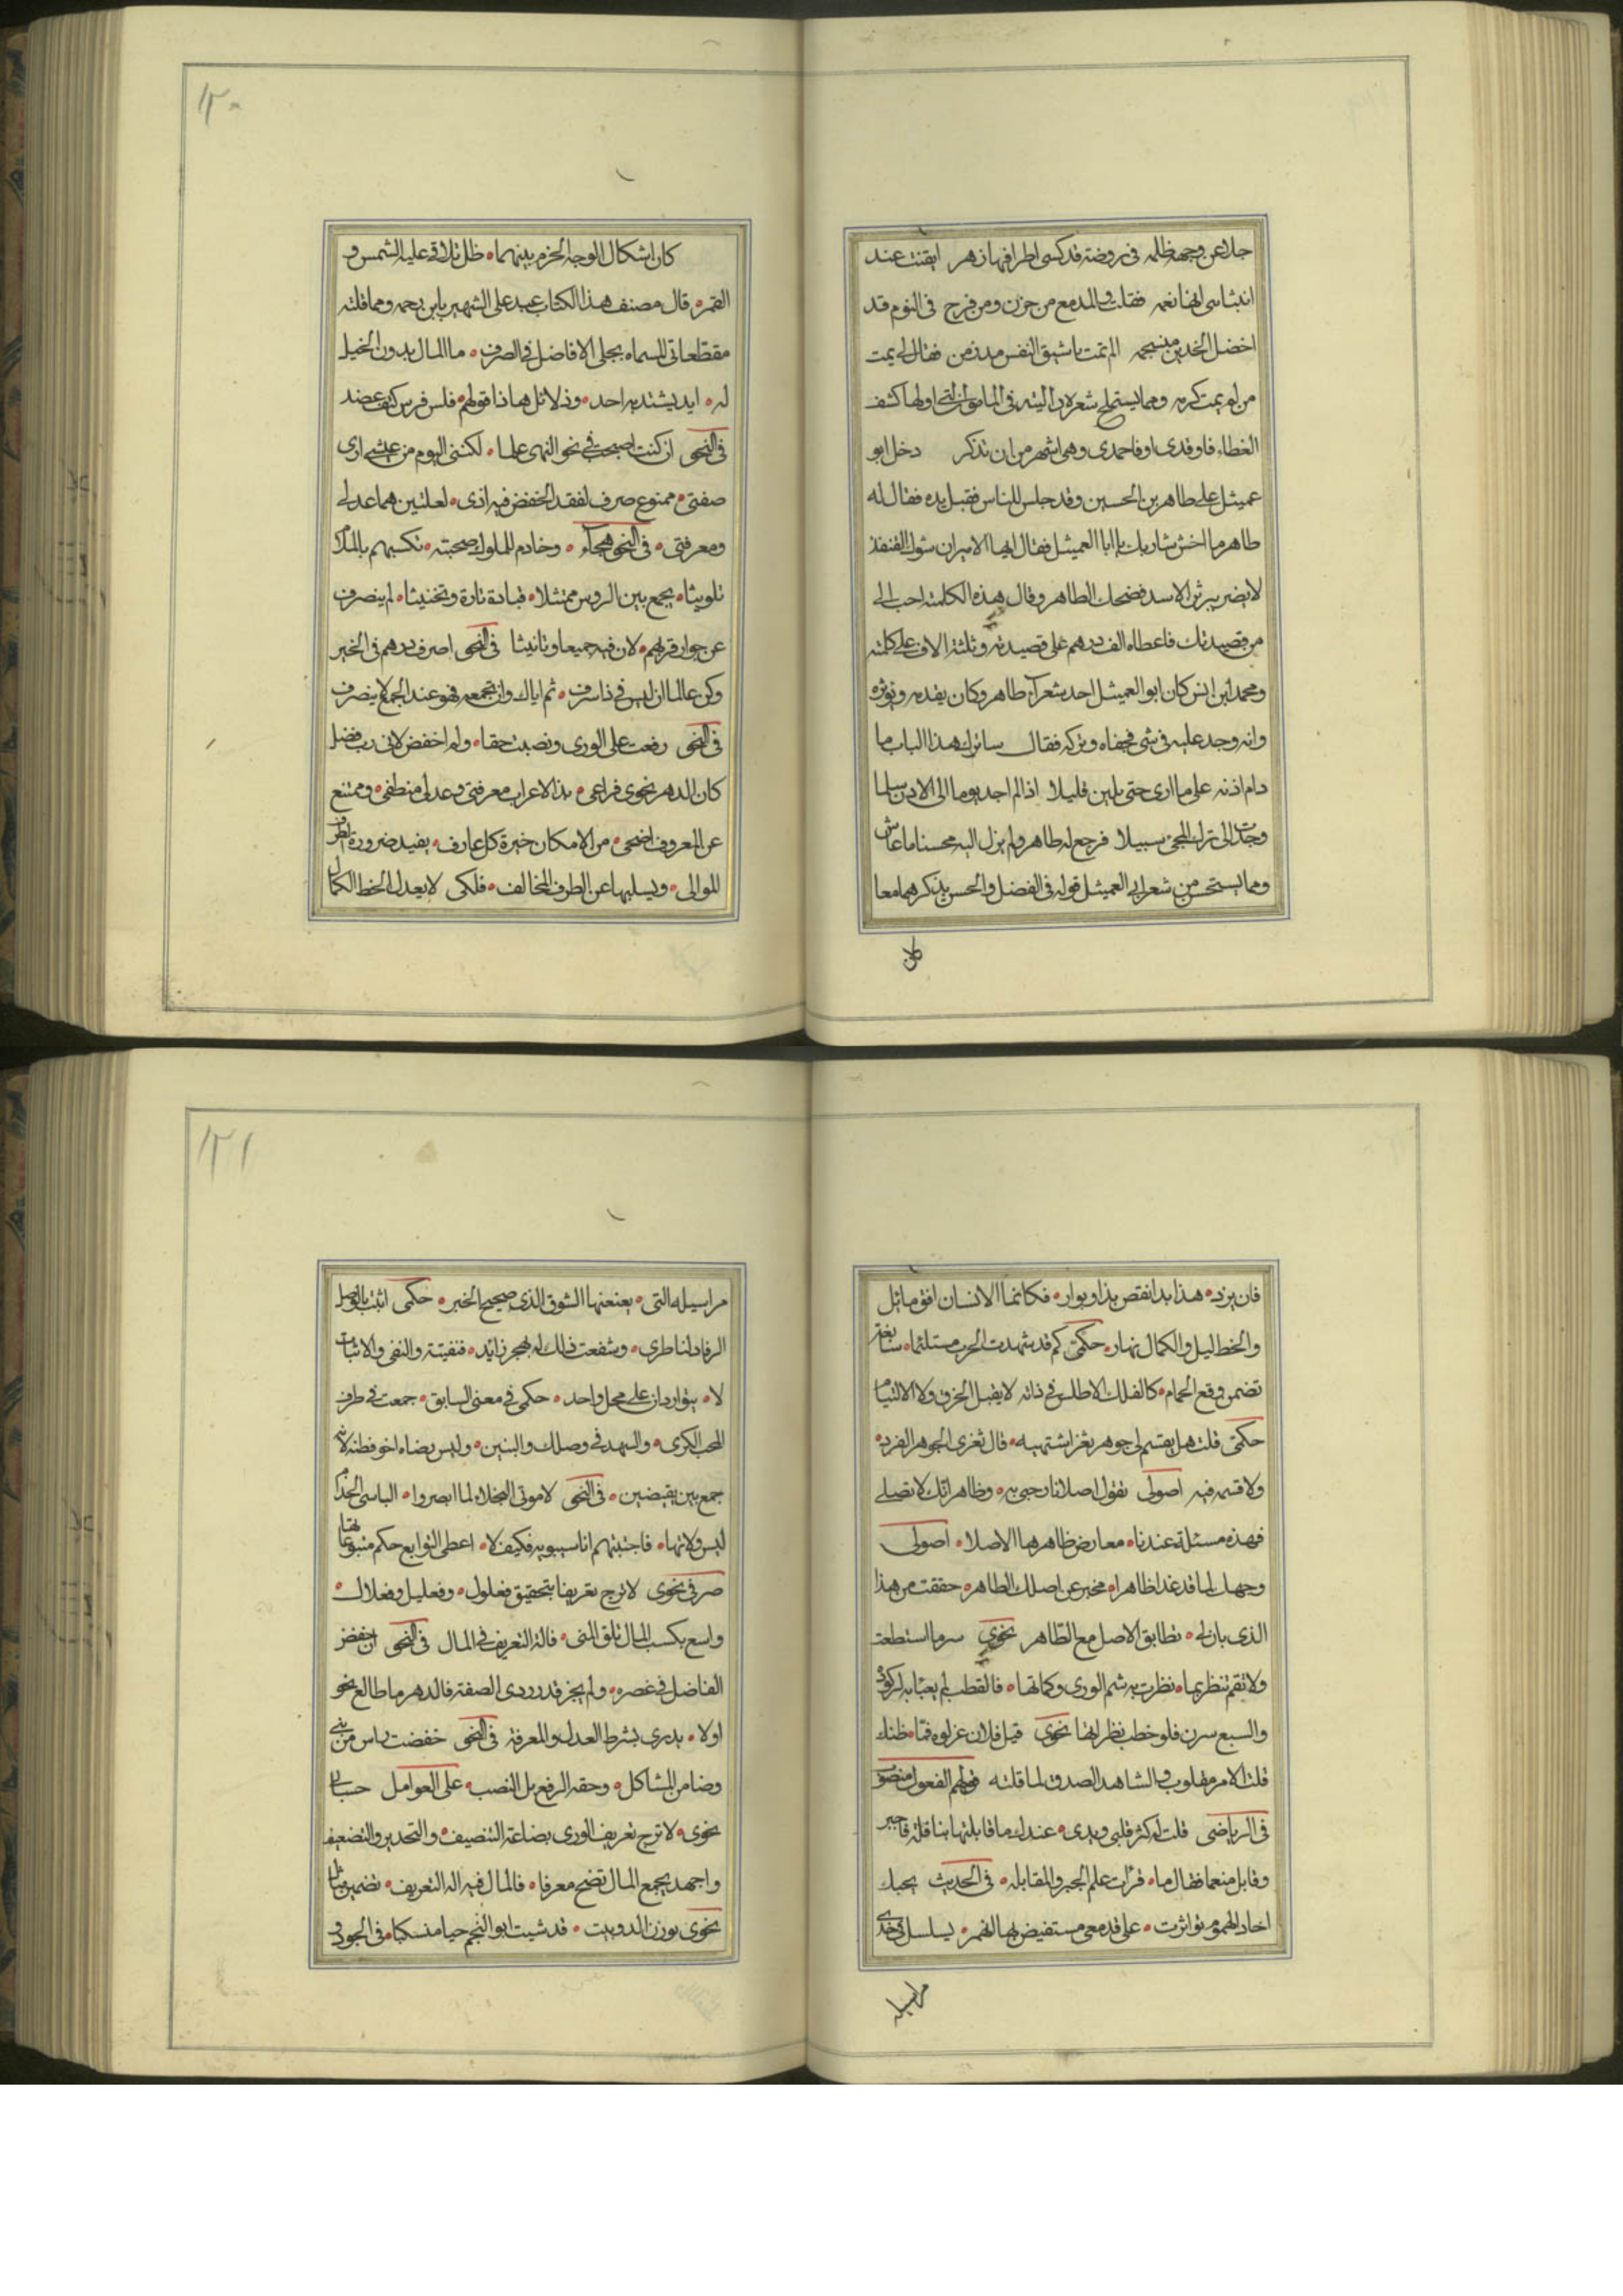 جلا عن وجهه ظلمه فى روضة قد كسى اطرافها زهر ايقنت عند
فقلت والدمع من حزن ومن فرح فى النوم قد
اخضل الخدين الم تمت يا شقيق النفس مذ زمن فقال لى يمت
من لم يمت كرمه ومما يستملح شعره فى المامون التى اولها كشف
الغطاء فاوقدى اوفاحمدى وهى اشهر من ان تذكر دخل ابو
عميثل على طاهر بن الحسين وقد جلس للناس فقبل يده فقال له
طاهر ما اخش شاربك يا ابا العميثل فقال ايها الامير ان شوك القنفذ
لا يضر برثن الاسد فضحك الطاهر وقال هذه الكلمة احب الى
من قصيدتك فاعطاه الف درهم على قصيدته وثلثة الاف على كلمته
ومحمد ابن انس كان ابو العميثل احد شعراء طاهر وكان يقدمه ويوثره
وانه وجد عليه فى شى فجفاه وتركه فقال ساترك هذا الباب ما
دام اذنه على ما ارى حتى يلين قليلا اذا لم اجد يوما الى الاذن سلما
وجدت الى ترك المجى سبيلا فرجع له طاهر ولم يزل اليه محسنا ما عاش
ومما يستحسن من شعر ابى العميثل قوله فى الفضل والحسن يذكرهما معا
كان
١٢٠
كان اشكال الوجه الخرم بينهما ظل تلاقى عليه الشمس و
القمر قال مصنف هذا الكتاب عبد على الشهير بابن رحمه ومما قلته
مقطعاتى المسماه بجلى الافاضل فى الصرف ما المال بدون الخيل
له ايد يشتد به احد وذ لاثل هاذا قولهم فلس فرس كتف عضد
فى النحو ان كنت اصبحت فى نحو النهى علما لكننى اليوم من عيشى ارى
صفتى ممنوع صرف لفقد الخفض فيه اذى لعلتين هما عدلى
ومعرفتى فى النحو هجاء وخادم للملوك صحبته تكسبهم بالملاك
تلويثا يجمع بين الروس ممتثلا قيادة تارة وتخنيثا لم ينصرف
عن جوار قربهم لان فيه جميعا وتانيثا فى النحو اصرف درهم فى الخير
وكن عالما ان ليس فى ذا سرف ثم اياك وان تجمعه فهو عند الجمع لا ينصرف
فى النحو رفعت على الورى ونصبت حقا ولم اخفض لانى رب فضل
كان الدهر نحوى فراعى بذا الاعراب معرفتى وعدلى منطقى وممتنع
عن المعروف اضحى من الامكان خيرة كل عارف يفيد ضرورة
الموالى ويسلبها عن الطرف المخالف فلكى لا يعدل الخط الكمال
فان يزد هذا بدا نقص بذا وبوار فكانما الانسان افق ماثل
والخط ليل والكمال نهار حكمى كم قد شهدت الحرب مستلئما
تضمن وقع الحمام كالفلك الاطلس فى ذاته لا يقبل الخرق ولا الالتيام
حكمى قلت هل يقسم لى جوهر بثغر اشتهيه قال ثغرى الجوهر الفرد
ولا قسمة فيه اصولى تقول اصلا نار حبى به وظاهر انك لا تصلى
فهذه مسئلة عندنا معارض ظاهرها الاصلا اصولى
وجهل لما قد غدا ظاهرا مخبر عن اصلك الطاهر حققت من هذا
الذى بان لى تطابق الاصل مع الظاهر نحوى سر ما استطعت
ولا تقم تنظر بما نظرت به شم الورى وكماتها فالقطب لم يعبئا به لركوده
والسبع سرن فلو خطب نظراتها نحوى قيل فلان عزلوه فما ظنك
قلت الامر مقلوب والشاهد الصدق لما قلته قولهم المفعول منصوب
فى الرياضى قلت له كثر قلبى ويدى عندك ما قابلتها بنافلة فاجبر
وقابل منعما فقال ما قرات علم الجبر والمقابله فى الحديث بحبك
احاد الهموم تواترت على قدمعى مستفيض لها الهمر يسلسل فى خدى
مراسيله
١٢١
مراسيله التى يعنعنها الشوق الذى صحيح الخبر حكمى اثبت بالوصل
الرقاد لناظرى وشفعت ذلك له بهجر زائد فنفيته والنفى والاثبات
لا يتواردان على محل واحد حكمى فى معنى السابق جمعت فى طرف
المحب الكرى والسهد فى وصلك والبنين وليس يضاه اخو فطنة لانه
جمع بين نقيضين فى النحو لامونى البخلاء لما ابصروا الباسى الخدام
ليس ولاتها فاجتبتهم انا سيبويه فكيف لا اعطى التوابع حكم متبوعاتها
صرفى نحوى لا ترج تعريفا بتحقيق فعلول وفعليل وفعلال
واسع بكسب المال تلق المنى فالة التعريف فى المال فى النحو ان خفض
الفاضل فى عصره ولم يجز قدر ردى الصفة فالدهر ما طالع نحو
اولا يدرى بشرط العدل والمعرفة فى النحو خفضت راس من بنى
وضامن المشاكل وحقه الرفع بل النصب على العوامل حسابى
نحوى لا ترج تعريف الورى بضاعة التنصيف والتحدير والتضعيف
واجهد بجمع المال تضح معرفا فالمال فيه اله التعريف تضمين مثل
نحوى بوزن الدوبيت قد شيت ابو النجم حيا منسكبا فى الجود و